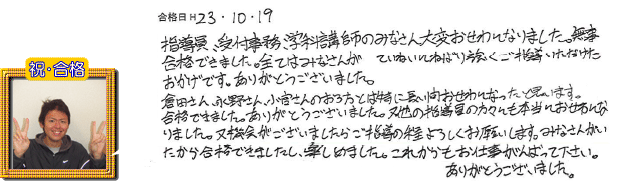 合格日 H23・10・19
祝・合格
指導員、受付事務、学科指講師のみなさん大変おせわになりました。無事
合格できました。全てはみなさんが ていねいにねばり強くご指導いただけた
おかげです。ありがとうございました。
倉田さん、水野さん、小宮さんのお3方とは特に長い間おせわになったと思います。
合格できました。ありがとうございました。又他の指導員の方々も本当におせわにな
りました。又機会がございましたらご指導の程よろしくお願いします。みなさんがい
たから合格できましたし、楽しめました。これからもお仕事がんばって下さい。
ありがとうございました。